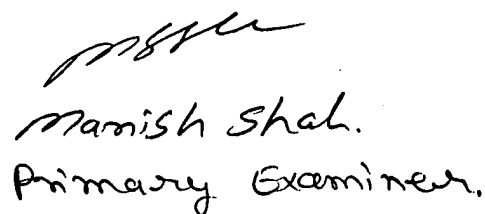 Manish Shah.
Primary Examiner.